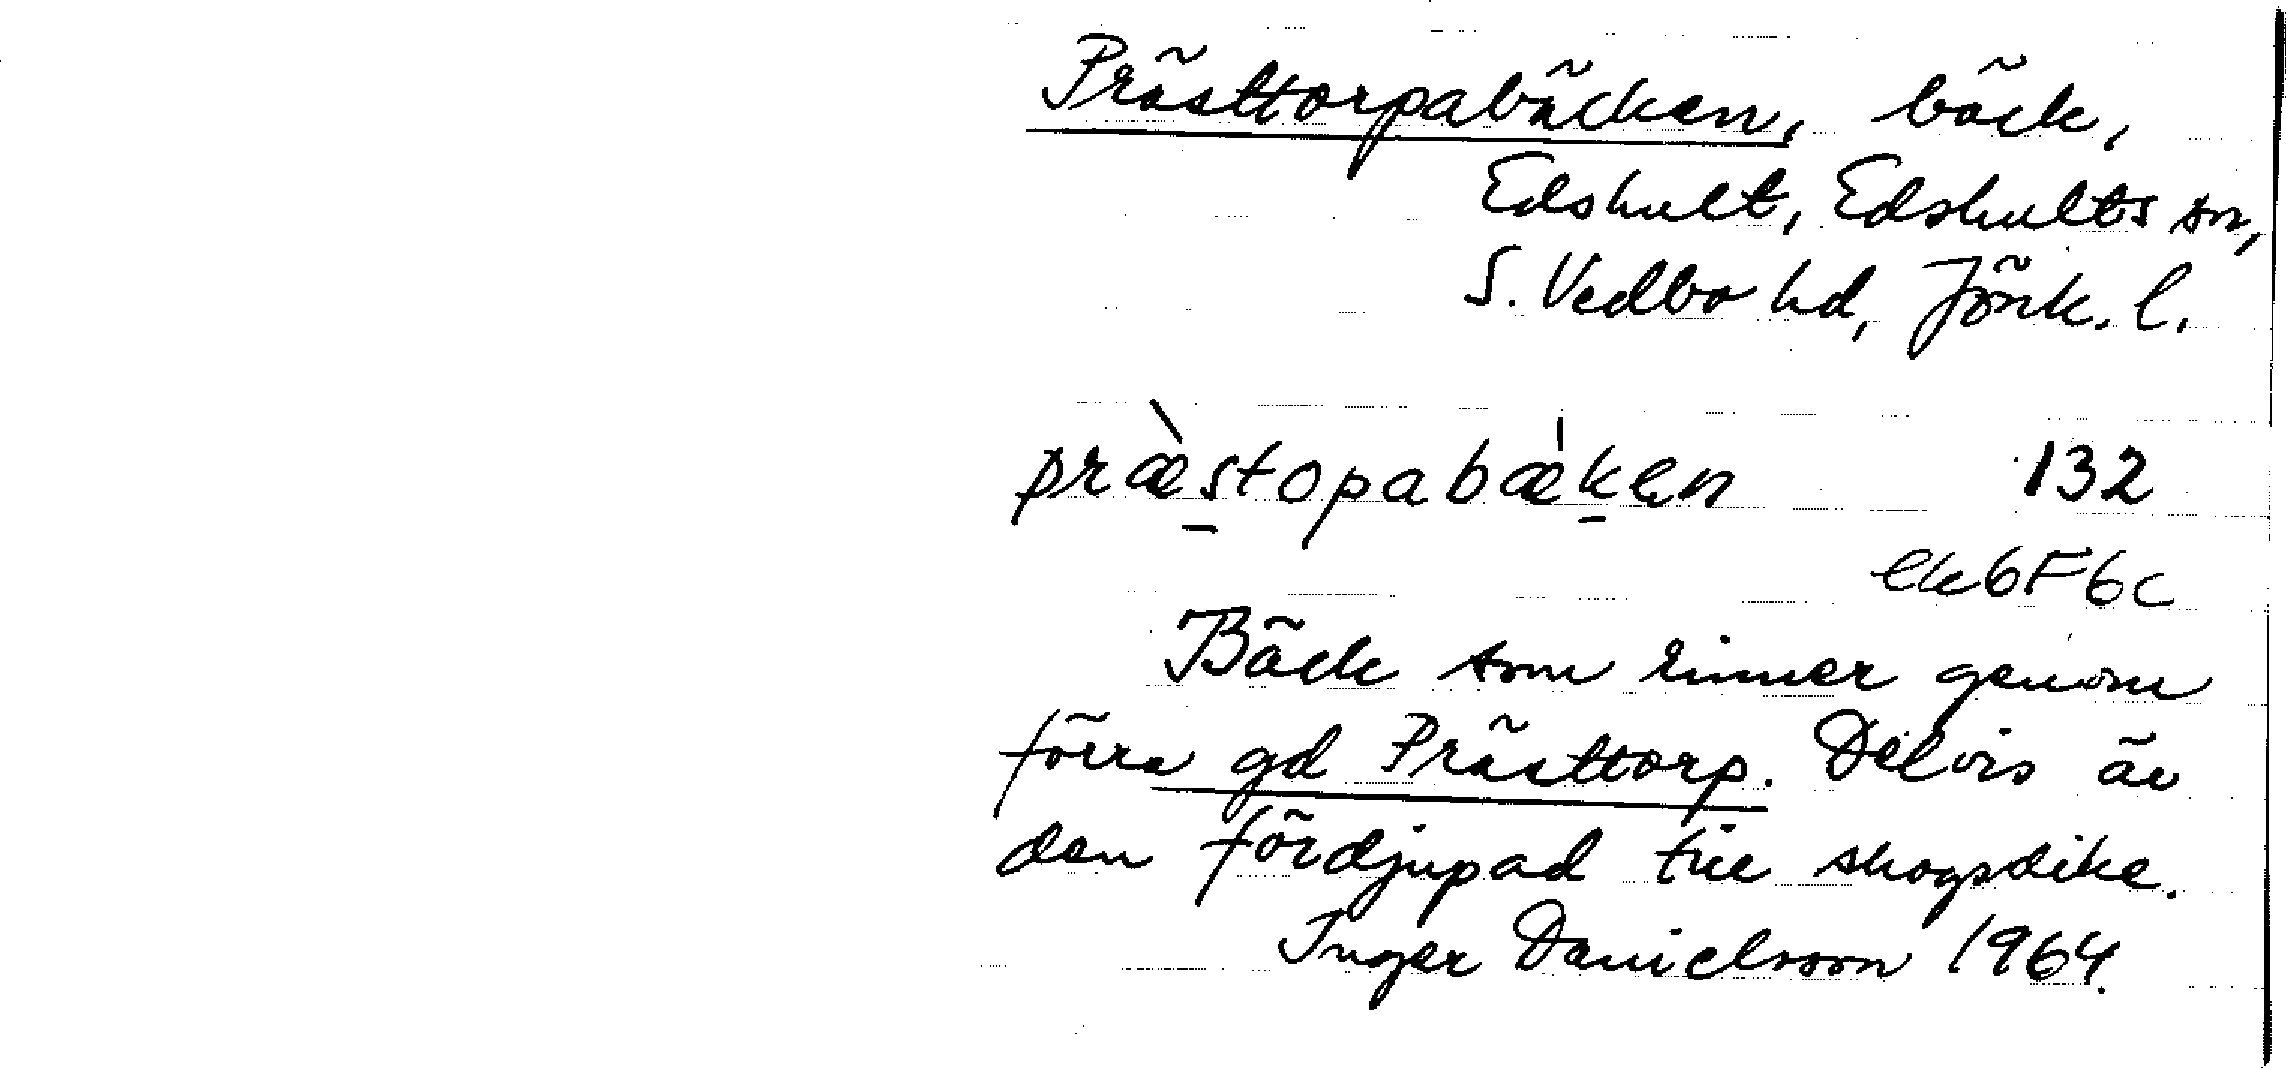 Prästtorpabäcken, bäck,
Edshult, Edshults sn,
S. Vedbo hd, Jönk. l.
præ̀stopabæ̍ken 132
ek6F6c
Bäck som rinner genom
förra gd Prästtorp. Delvis är
den fördjupad till skogsdike.
Inger Danielsson 1964.